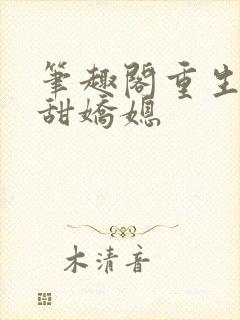 筆趣閣重生
甜嬌媳
木清音